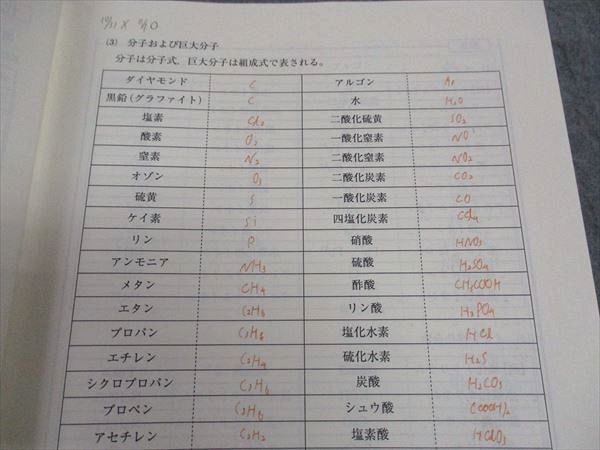 10/11 X 9/10
(3) 分子および巨大分子
分子は分子式，巨大分子は組成式で表される。
ダイヤモンド C アルゴン Ar
黒鉛(グラファイト) C 水 H₂O
塩素 Cl₂ 二酸化硫黄 SO₂
酸素 O₂ 一酸化窒素 NO
窒素 N₂ 二酸化窒素 NO₂
オゾン O₃ 二酸化炭素 CO₂
硫黄 S 一酸化炭素 CO
ケイ素 Si 四塩化炭素 CCl₄
リン P 硝酸 HNO₃
アンモニア NH₃ 硫酸 H₂SO₄
メタン CH₄ 酢酸 CH₃COOH
エタン C₂H₆ リン酸 H₃PO₄
プロパン C₃H₈ 塩化水素 HCl
エチレン C₂H₄ 硫化水素 H₂S
シクロプロパン C₃H₆ 炭酸 H₂CO₃
プロペン C₃H₆ シュウ酸 (COOH)₂
アセチレン C₂H₂ 塩素酸 HClO₃